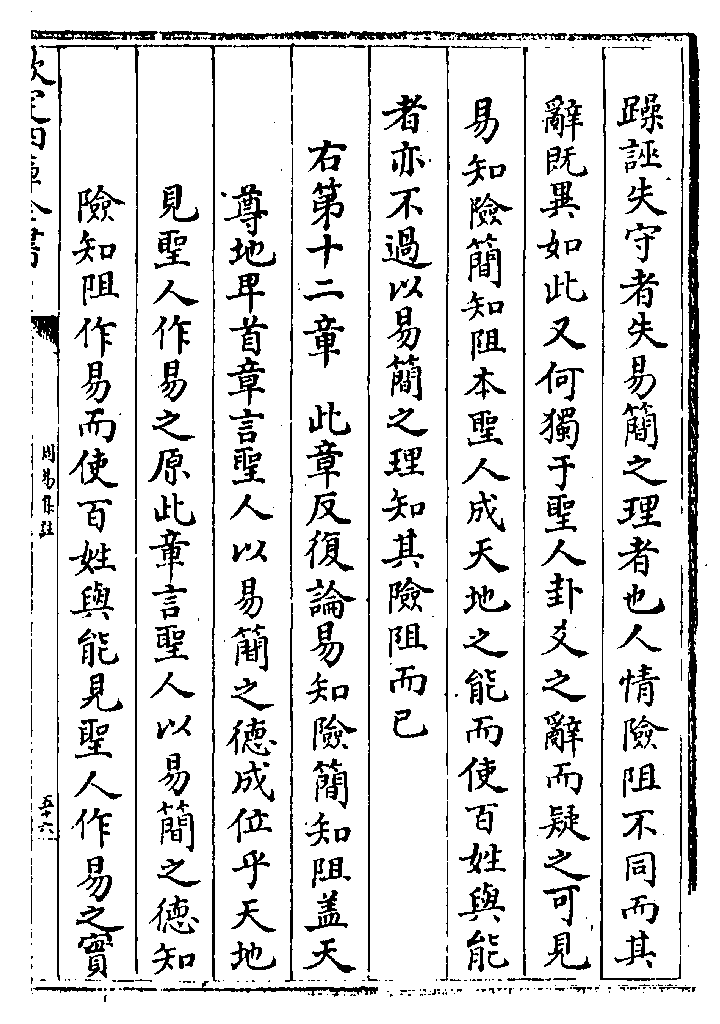 躁誣失守者失易簡之理者也人情險阻不同而其
辭既異如此又何獨于聖人卦爻之辭而疑之可見
易知險簡知阻本聖人成天地之能而使百姓與能
者亦不過以易簡之理知其險阻而已
右第十二章　此章反復論易知險簡知阻蓋天
尊地卑首章言聖人以易簡之德成位乎天地
見聖人作易之原此章言聖人以易簡之德知
險知阻作易而使百姓與能見聖人作易之實
欽定四庫全書
周易集註
五十六